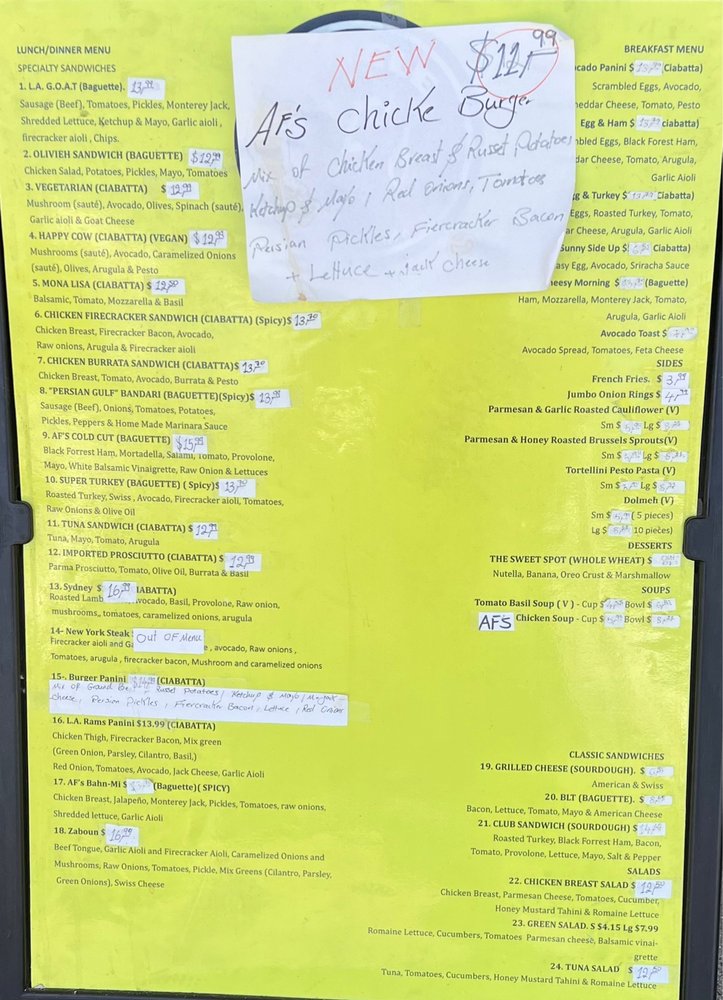 NEW $11.99
AF's Chicke Burger
Mix of Chicken Breast & Russet Potatoes
Ketchup & Mayo, Red Onions, Tomatoes
Persian Pickles, Fiercracker Bacon
+ Lettuce + Jack Cheese
LUNCH/DINNER MENU
SPECIALTY SANDWICHES
1. L.A. G.O.A.T (Baguette). 13.99
Sausage (Beef), Tomatoes, Pickles, Monterey Jack,
Shredded Lettuce, Ketchup & Mayo, Garlic aioli,
firecracker aioli, Chips.
2. OLIVIEH SANDWICH (BAGUETTE) $12.99
Chicken Salad, Potatoes, Pickles, Mayo, Tomatoes
3. VEGETARIAN (CIABATTA) $ 12.99
Mushroom (sauté), Avocado, Olives, Spinach (sauté),
Garlic aioli & Goat Cheese
4. HAPPY COW (CIABATTA) (VEGAN) $12.99
Mushrooms (sauté), Avocado, Caramelized Onions
(sauté), Olives, Arugula & Pesto
5. MONA LISA (CIABATTA) $
Balsamic, Tomato, Mozzarella & Basil
6. CHICKEN FIRECRACKER SANDWICH (CIABATTA) (Spicy)$
Chicken Breast, Firecracker Bacon, Avocado,
Raw onions, Arugula & Firecracker aioli
7. CHICKEN BURRATA SANDWICH (CIABATTA)$
Chicken Breast, Tomato, Avocado, Burrata & Pesto
8. "PERSIAN GULF" BANDARI (BAGUETTE)(Spicy)$ 13.99
Sausage (Beef), Onions, Tomatoes, Potatoes,
Pickles, Peppers & Home Made Marinara Sauce
9. AF'S COLD CUT (BAGUETTE) $15.99
Black Forrest Ham, Mortadella, Salami, Tomato, Provolone,
Mayo, White Balsamic Vinaigrette, Raw Onion & Lettuces
10. SUPER TURKEY (BAGUETTE) ( Spicy)$
Roasted Turkey, Swiss , Avocado, Firecracker aioli, Tomatoes,
Raw Onions & Olive Oil
11. TUNA SANDWICH (CIABATTA) $ 12.99
Tuna, Mayo, Tomato, Arugula
12. IMPORTED PROSCIUTTO (CIABATTA) $ 12.99
Parma Prosciutto, Tomato, Olive Oil, Burrata & Basil
13. Sydney $ 16.99 IABATTA)
Roasted Lamb vocado, Basil, Provolone, Raw onion,
mushrooms,, tomatoes, caramelized onions, arugula
14- New York Steak Out OF Menu
Firecracker aioli and Ga e , avocado, Raw onions ,
Tomatoes, arugula , firecracker bacon, Mushroom and caramelized onions
15-. Burger Panini (CIABATTA)
Mix of Ground Russet Potatoes, Ketchup & Mayo,
cheese, Persian Pickles, Fiercracker Bacon, Lettuce, Red Onions
16. L.A. Rams Panini $13.99 (CIABATTA)
Chicken Thigh, Firecracker Bacon, Mix green
(Green Onion, Parsley, Cilantro, Basil,)
Red Onion, Tomatoes, Avocado, Jack Cheese, Garlic Aioli
17. AF's Bahn-Mi $ (Baguette)( SPICY)
Chicken Breast, Jalapeño, Monterey Jack, Pickles, Tomatoes, raw onions,
Shredded lettuce, Garlic Aioli
18. Zaboun $ 16.99
Beef Tongue, Garlic Aioli and Firecracker Aioli, Caramelized Onions and
Mushrooms, Raw Onions, Tomatoes, Pickle, Mix Greens (Cilantro, Parsley,
Green Onions), Swiss Cheese
BREAKFAST MENU
cado Panini $ Ciabatta)
Scrambled Eggs, Avocado,
heddar Cheese, Tomato, Pesto
Egg & Ham $ ciabatta)
mbled Eggs, Black Forrest Ham,
dar Cheese, Tomato, Arugula,
Garlic Aioli
g & Turkey $ Ciabatta)
Eggs, Roasted Turkey, Tomato,
ar Cheese, Arugula, Garlic Aioli
Sunny Side Up $ Ciabatta)
asy Egg, Avocado, Sriracha Sauce
heesy Morning $ (Baguette)
Ham, Mozzarella, Monterey Jack, Tomato,
Arugula, Garlic Aioli
Avocado Toast $
Avocado Spread, Tomatoes, Feta Cheese
SIDES
French Fries. $ 3.99
Jumbo Onion Rings $ 4.99
Parmesan & Garlic Roasted Cauliflower (V)
Sm $ Lg $
Parmesan & Honey Roasted Brussels Sprouts(V)
Sm $ Lg $
Tortellini Pesto Pasta (V)
Sm $ Lg $
Dolmeh (V)
Sm $ ( 5 pieces)
Lg $ 10 pieces)
DESSERTS
THE SWEET SPOT (WHOLE WHEAT) $
Nutella, Banana, Oreo Crust & Marshmallow
SOUPS
Tomato Basil Soup ( V ) - Cup $ Bowl $
AF'S Chicken Soup - Cup $ Bowl $
CLASSIC SANDWICHES
19. GRILLED CHEESE (SOURDOUGH). $
American & Swiss
20. BLT (BAGUETTE). $
Bacon, Lettuce, Tomato, Mayo & American Cheese
21. CLUB SANDWICH (SOURDOUGH) $
Roasted Turkey, Black Forrest Ham, Bacon,
Tomato, Provolone, Lettuce, Mayo, Salt & Pepper
SALADS
22. CHICKEN BREAST SALAD $
Chicken Breast, Parmesan Cheese, Tomatoes, Cucumber,
Honey Mustard Tahini & Romaine Lettuce
23. GREEN SALAD. S $4.15 Lg $7.99
Romaine Lettuce, Cucumbers, Tomatoes Parmesan cheese, Balsamic vinai-
grette
24. TUNA SALAD $
Tuna, Tomatoes, Cucumbers, Honey Mustard Tahini & Romaine Lettuce